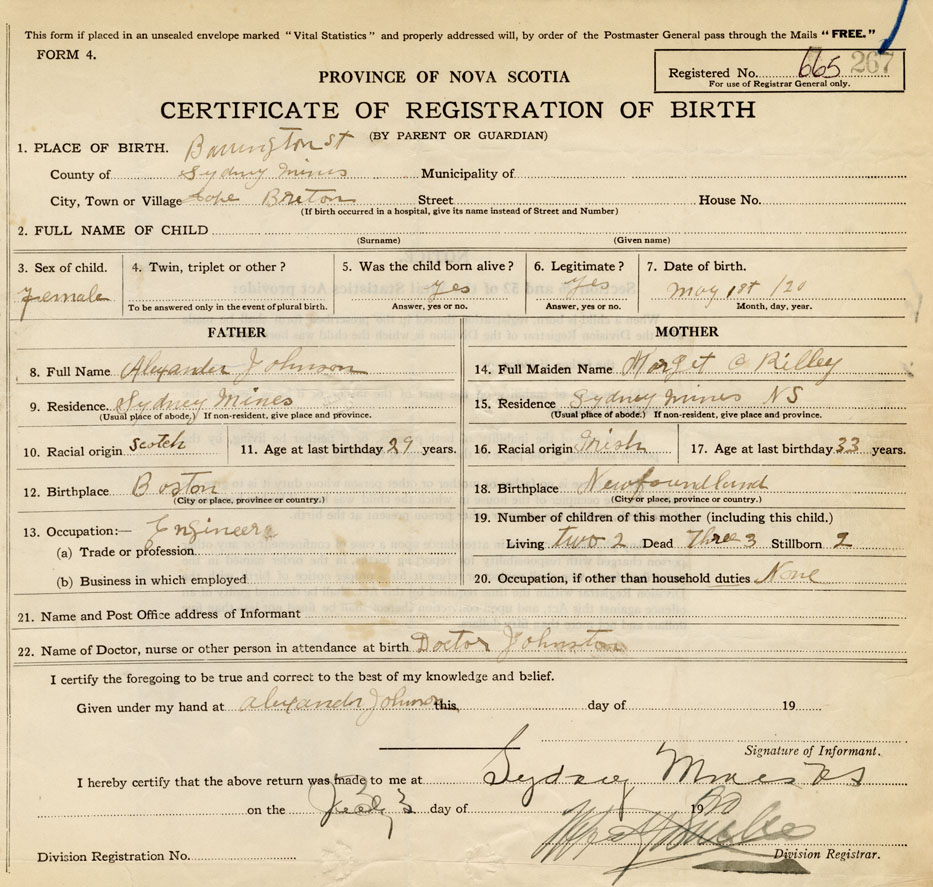 This form if placed in an unsealed envelope marked "Vital Statistics" and properly addressed will, by order of the Postmaster General pass through the Mails "FREE."
FORM 4.
Registered No. 665 267
For use of Registrar General only.
PROVINCE OF NOVA SCOTIA
CERTIFICATE OF REGISTRATION OF BIRTH
(BY PARENT OR GUARDIAN)
1. PLACE OF BIRTH. Barrington St
County of Sydney Mines Municipality of
City, Town or Village Cope Breton Street House No.
(If birth occurred in a hospital, give its name instead of Street and Number)
2. FULL NAME OF CHILD
(Surname) (Given name)
3. Sex of child. 4. Twin, triplet or other? 5. Was the child born alive? 6. Legitimate? 7. Date of birth.
Female yes yes May 1st /20
To be answered only in the event of plural birth. Answer, yes or no. Answer, yes or no. Month, day, year.
FATHER
8. Full Name Alexander Johnson
9. Residence. Sydney Mines
(Usual place of abode.) If non-resident, give place and province.
10. Racial origin Scotch 11. Age at last birthday 29 years.
12. Birthplace Boston
(City or place, province or country.)
13. Occupation:— Engineer
(a) Trade or profession
(b) Business in which employed
MOTHER
14. Full Maiden Name Marget C Killey
15. Residence Sydney Mines NS
(Usual place of abode.) If non-resident, give place and province.
16. Racial origin Irish 17. Age at last birthday 33 years.
18. Birthplace Newfoundland
(City or place, province or country.)
19. Number of children of this mother (including this child.)
Living two 2 Dead Three 3 Stillborn 2
20. Occupation, if other than household duties None
21. Name and Post Office address of Informant
22. Name of Doctor, nurse or other person in attendance at birth Doctor Johnston
I certify the foregoing to be true and correct to the best of my knowledge and belief.
Given under my hand at Alexander Johnson this day of 19
Signature of Informant.
I hereby certify that the above return was made to me at Sydney Mines NS
on the day of 1920
Division Registration No. Division Registrar.